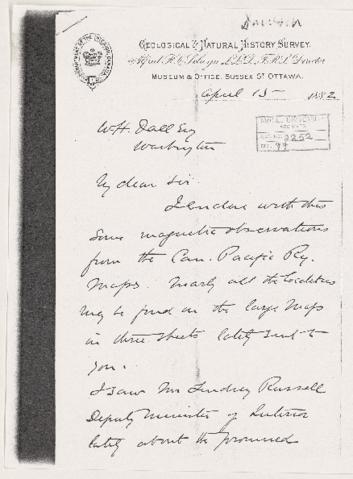 Dawson
GEOLOGICAL & NATURAL HISTORY SURVEY.
Alfred R.C. Selwyn L.L.D., F.R.S., Director
MUSEUM & OFFICE. SUSSEX ST OTTAWA.
April 15 1882
W.H. Dall Esq
Washington
My dear Sir.
I enclose with this
some magnetic observations
from the Can. Pacific Ry.
Maps. Nearly all the localities
may be found on the large Map
in three sheets lately sent to
you.
I saw Mr Lindsay Russell
Deputy Minister of Interior
lately about the promised